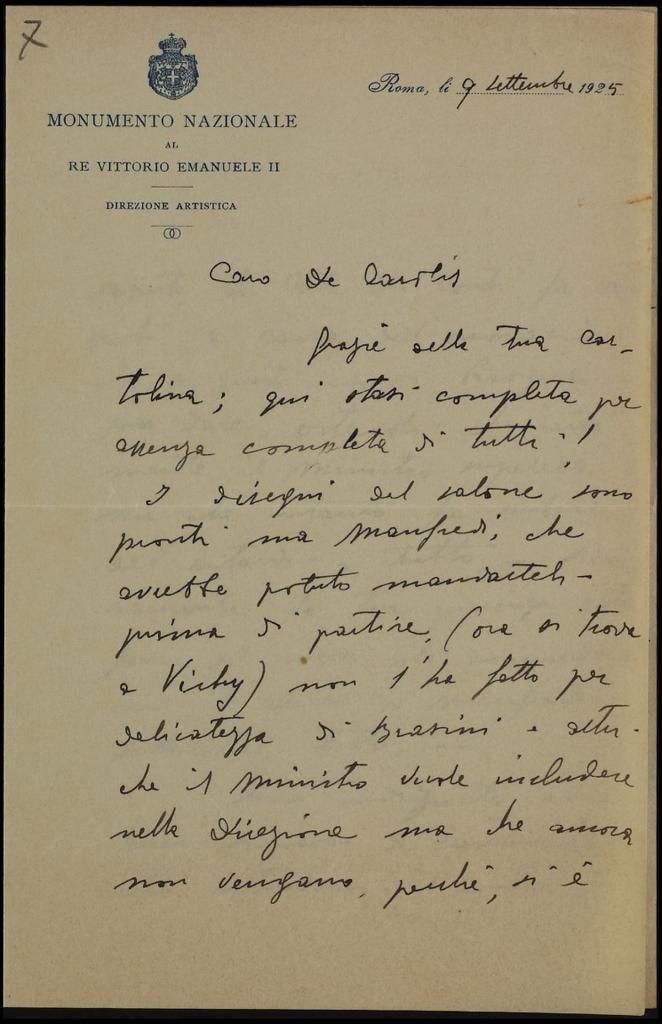 7
Roma, li 9 Settembre 1925
MONUMENTO NAZIONALE
AL
RE VITTORIO EMANUELE II
DIREZIONE ARTISTICA
Caro De Carolis
grazie della tua car-
tolina; qui stasi completa per
assenza completa di tutti!
I disegni del salone sono
pronti ma Manfredi, che
avrebbe potuto mandarteli
prima di partire, (ora si trova
a Vichy) non l'ha fatto per
delicatezza di Brasini e altri
che il Ministro vuole includere
nella Direzione ma che ancora
non vengano, perchè, si è